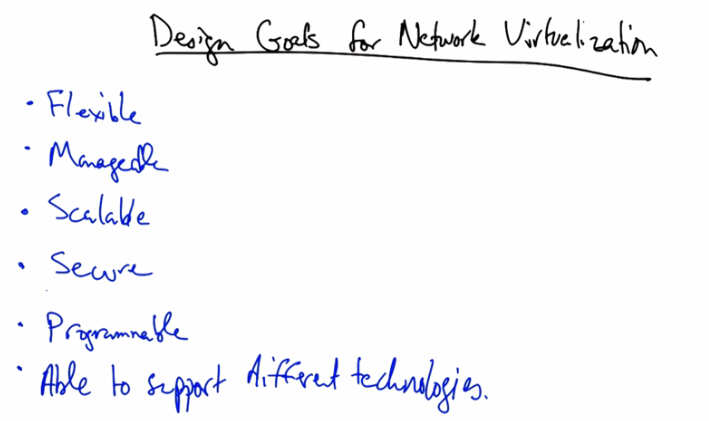 Design Goals for Network Virtualization
• Flexible
• Manageable
• Scalable
• Secure
• Programmable
• Able to support different technologies.